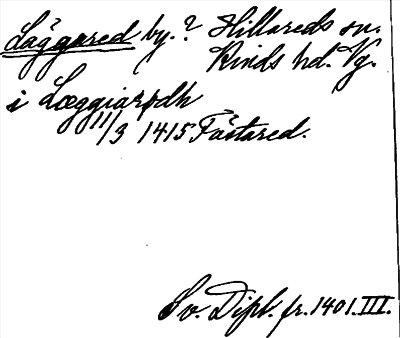 Läggared by.? Hillareds sn.
Kinds hd. Vg.
i Læggiarydh
11/3 1415 Fästared.
Sv. Dipl. fr. 1401. III.